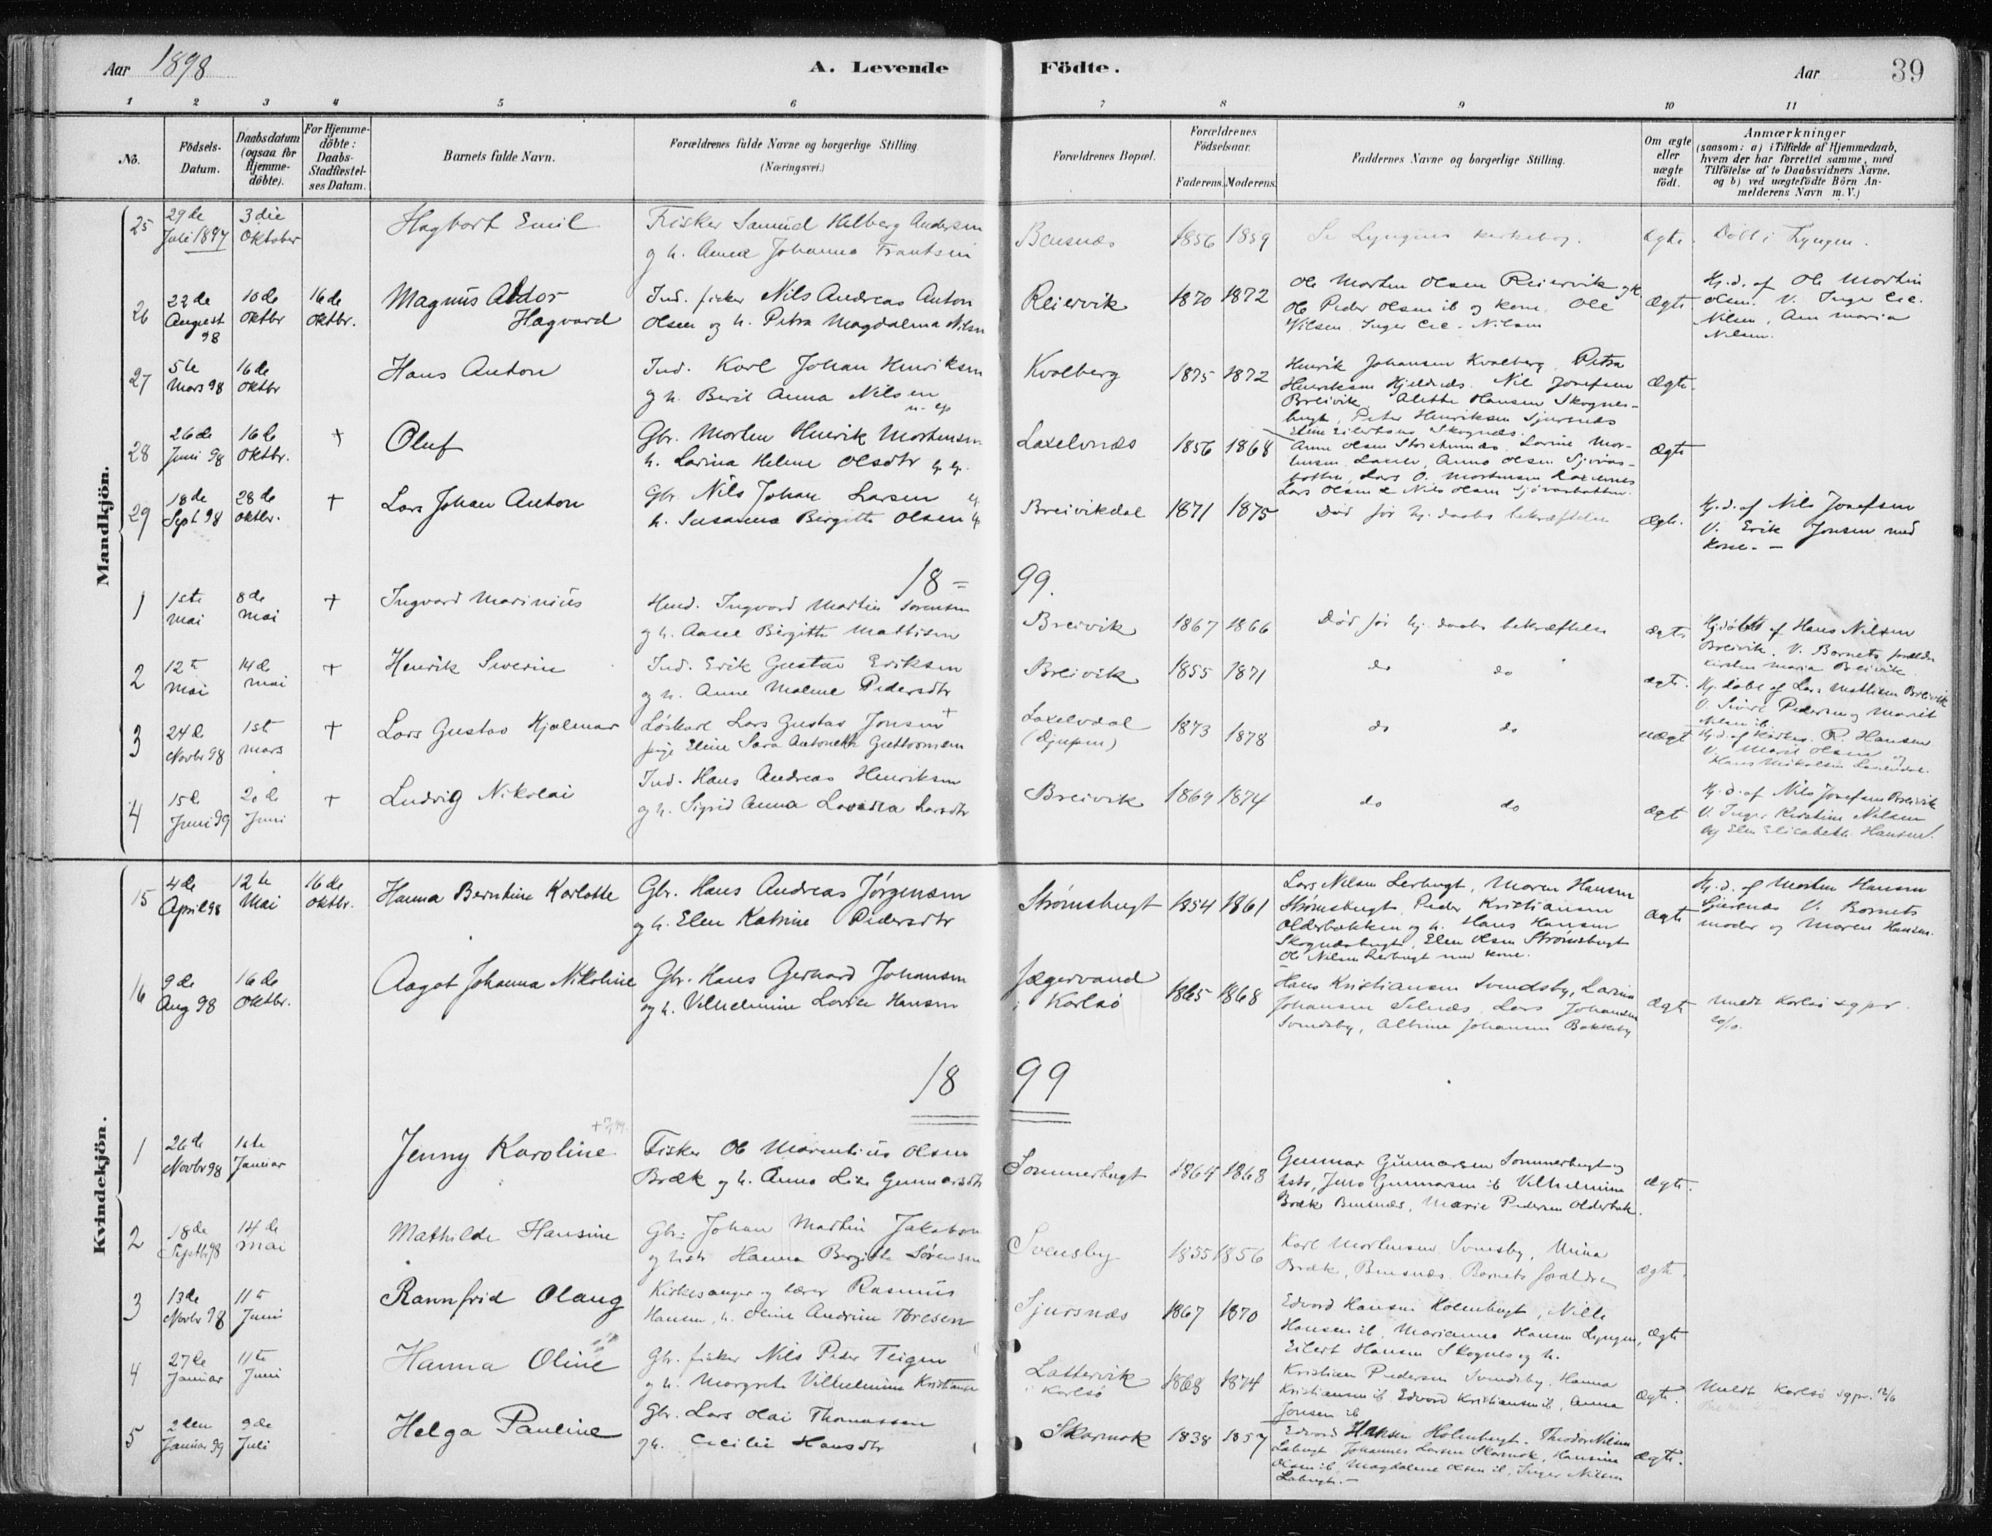 Aar 1898 A. Levende Födte. Aar 39
1 2 3 4 5 6 7 8 9 10 11
No. Födsels-Datum. Daabsdatum (ogsaa for Hjemme-döbte). For Hjemme-döbte: Daabs-Stadfæstel-ses Datum. Barnets fulde Navn. Forældrenes fulde Navne og borgerlige Stilling (Næringsvei.) Forældrenes Bopæl. Forældrenes Födselsaar. Faderens. Moderens. Faddernes Navne og borgerlige Stilling. Om ægte eller uægte födt. Anmærkninger (saasom: a) i Tilfælde af Hjemmedaab, hvem der har forrettet samme, med Tilföielse af to Daabsvidners Navne, og b) ved uægtefödte Börn An-melderens Navn m. V.)
Mandkjön.
25 29de Juli 1897 3die Oktober Hagbart Emil Fisker Samuel Hilberg Andersen
og h. Anna Johanna Frantsen Bensnæs 1856 1859 Se Lyngens kirkebog. ægte. Döbt i Lyngen.
26 22de August 98 10de Oktbr 16de Oktbr. Magnus Aldor Hagvard Ind. fisker Nils Andreas Anton
Olsen og h. Petra Magdalena Nilsen Reiervik 1870 1872 Ole Morten Olsen Reiervik og k
Ole Peder Olsen ib og kone. Ole
Nilsen. Inger Cec. Nilsen ægte. Hj. d. af Ole Mortin
Olsen. V. Inger Cec.
Nilsen, Ane Maria
Nilsen.
27 5te Mars 98 16de Oktbr Hans Anton Ind. Karl Johan Henriksen
og h. Berit Anna Nilsen Kvalberg 1875 1872 Henrik Johansen Kvalberg, Petra
Henriksen Kjeldnæs. Nil Josefsen
Breivik, Alette Hansen Skognes-
bugt, Peter Henriksen Sjursnæs
Eline Eilertsens Skognæs. ægte.
28 26de Juni 98 16de Oktbr. + Oluf Gbr. Morten Henrik Mortensen
h. Larina Helene Olsdtr Laxelvnæs 1856 1868 Anne Olsen Storstennæs Lovine Mor-
tensen Laxelv, Anna Olsen Sjövas-
botten, Lars O. Mortensen Laxelvnes
Lars Olsen & Nils Olsen Sjövasbotten. ægte
29 18de Sept 98 28de Oktbr. + Lars Johan Anton Gbr Nils Johan Larsen
h. Susanna Birgitte Olsen Breivikdal 1871 1875 Död för hj. daabs bekræftelse ægte. Hj. d. af Nils Josefsen
V. Erik Jonsen med
Kone. -
18 = 99.
1 1ste mai 8de mai + Ingvard Marinius Hmd. Ingvard Martin Sorensen
og h. Aasel Birgitte Mattisen Breivik 1867 1866 Död för hj. daabs bekræftelse ægte Hj. döbt af Hans Nilsen
Breivik. V. Barnets forældre
Kirsten Maria Breivik.
2 12te mai 14de mai + Henrik Severin Ind. Erik Gustav Eriksen
og h. Anne Malene Pedersdtr Breivik 1855 1871 do do ægte. Hj. döbt af Lars Mathisen Breivik
V. Sivert Pedersen og Marit
Nilsen ib.
3 24de Novbr 98 1ste mars + Lars Gustav Hjalmar Löskarl Lars Gustav Jonsen +
pige Eline Sara Antonette Guttormsen Laxelvdal (Djupen) 1873 1878 do do uægt Hj. d. af R. Hansen
V. Marit Olsen
Hans Mikalsen Laxelvdal.
4 15de Juni 99 20de Juni + Ludvig Nikolai Ind. Hans Andreas Henriksen
og h. Sigrid Anna Lovisa Larsdtr Breivik 1869 1874 do do ægt Hj. d. af Nils Josefsen Breivik
V. Inger Kirstine Nilsen
og Elen Elisabeth Hansen.
Kvindekjön.
15 4de April 98 12te Mai 16de Oktbr. Hanna Berntine Karlotte Gbr. Hans Andreas Jørgensen
og h. Elen Katrine Pedersdtr Strømsbugt 1854 1861 Lars Nilsen Lerbugt, Maren Hansen
Strømsbugt, Peder Kristiansen
Olderbakken og h. Hans Hansen
Skognæsbugt, Elen Olsen Strømsbugt
Ole Nilsen Lerbugt med kone. ægte Hj. d. af Morten Hansen
Gjærnæs V. Barnets
moder og Maren Hansen.
16 9de Aug 98 16de Oktbr. Aagot Johanna Nikoline Gbr. Hans Gerhard Johansen
og h. Vilhelmine Lovise Hansen Jægervand
i Karlsö 1865 1868 Hans Kristiansen Svendsby, Larine
Johansen Selnæs, Lars Johansen
Svendsby, Albine Johansen Bakkeby ægte Meldt Karlsö sgpr.
18 99
1 26de Novbr 98 1ste Januar Jenny Karoline Fisker Ole Marentius Olsen
Bræk og h. Anna Lise Gunnarsdtr Sommerbugt 1864 1868 Gunnar Gunnarsen Sommerbugt og
hstr, Jens Gunnarsen ib Vilhelmine
Bræk Bensnæs, Marie Pedersen Olderbak. ægte.
2 18de Septb 98 14de mai Mathilde Hansine Gbr: Johan Martin Jakobsen
og hstr Hanna Bergitte Sørensen Svensby 1855 1856 Karl Mortensen Svensby, Mina
Bræk, Bensnæs. Barnets forældre ægte.
3 13de Novbr 98 11te Juni Rannfrid Olaug Kirkesanger og lærer Rasmus
Hansen, h. Oline Andrine Toresen Sjursnæs 1867 1870 Edvard Hansen Holmbugt, Nille
Hansen ib, Marianna Hansen Lyngen,
Eilert Hansen Skognes og h. ægte
4 27de Januar 11te Juni Hanna Oline Gbr. fisker Nils Peder Teigen
og h. Margrete Vilhelmine Kristiansen Lattervik
i Karlsö 1868 1874 Kristian Pedersen Svendsby. Hanna
Kristiansen ib Edvard Kristiansen ib, Anna
Jonsen ib ægte. Meldt Karlsö sgpr.
5 2den Januar 99 9de Juli Helga Pauline Gbr. Lars Olai Thomassen
og h. Cecilie Hansdtr Skarmok 1838 1857 Edvard Hansen Holmbugt. Theodor Nilsen
Labugt Johannes Larsen Skarmok, Hansine
Olsen ib, Magdalene Olsen ib, Inger Nilsen
Labugt. - ægte.